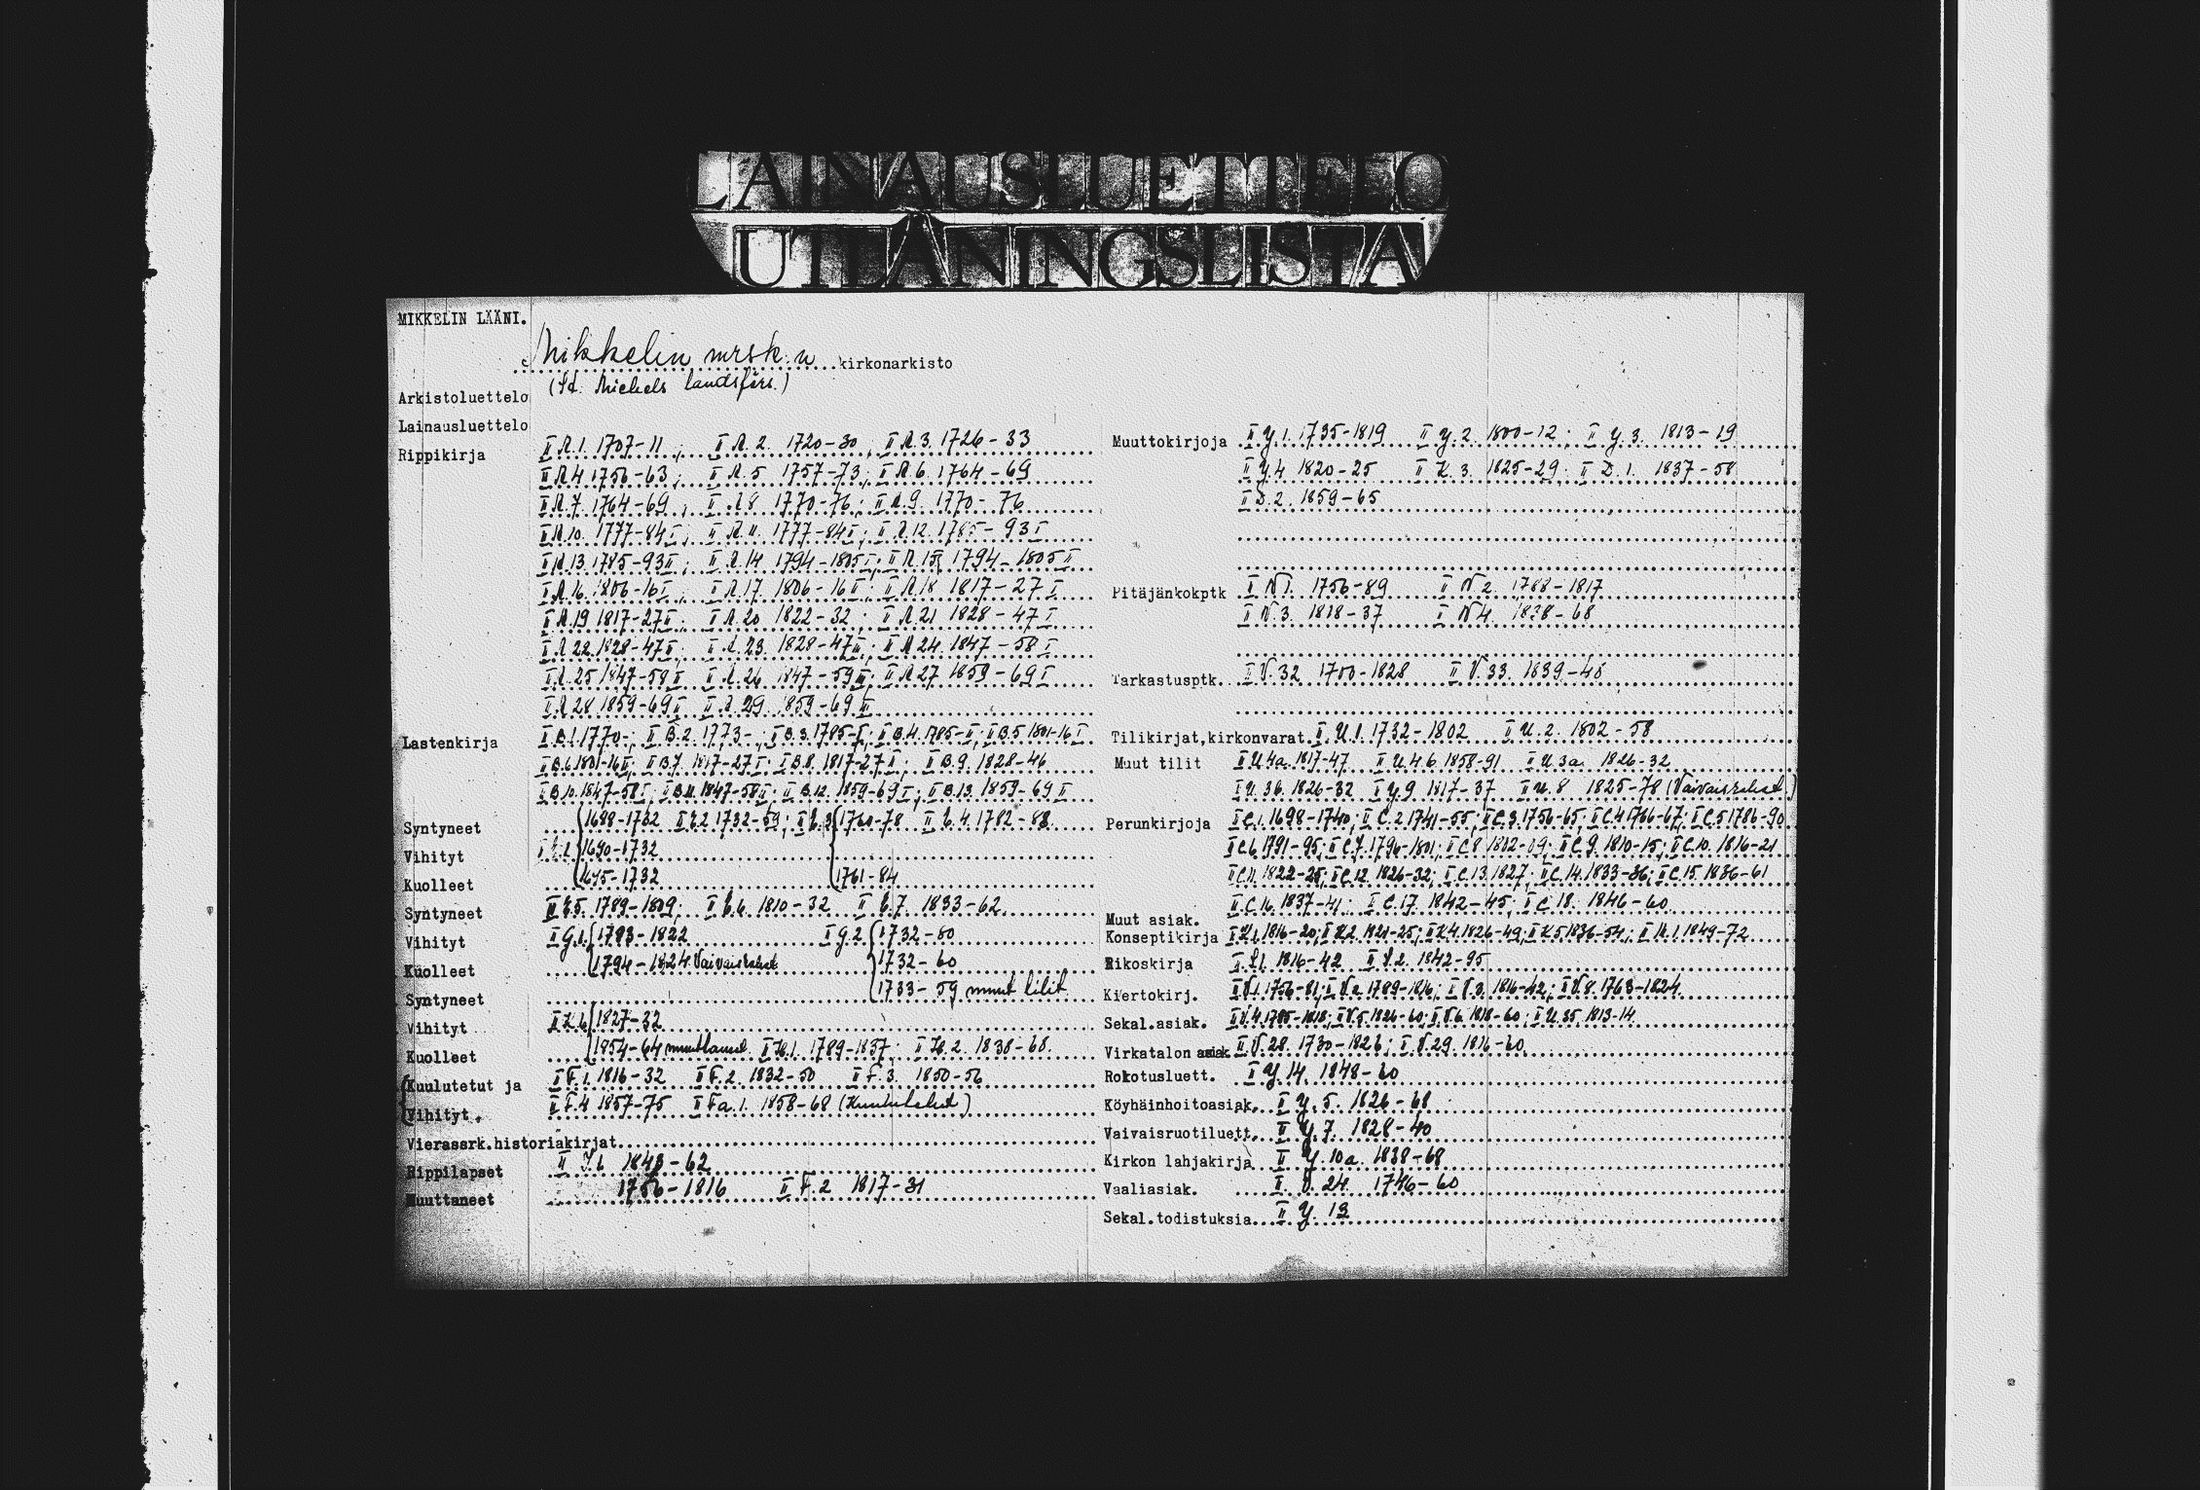 LAINAUSLUETTELO
UTLÅNINGSLISTA
MIKKELIN LÄÄNI.
Mikkelin mrsk:n kirkonarkisto
(St. Michels landsförs.)
Arkistoluettelo
Lainausluettelo
Rippikirja II A.1. 1707-11; II A.2. 1720-30; II A.3. 1726-33
II A.4. 1756-63; II A.5 1757-73; II A.6. 1764-69
II A.7. 1764-69; II A 8 1770-76; II A.9. 1770-76
II A.10. 1777-84 I; II A.11. 1777-84 I; II A.12. 1785-93 I
II A.13. 1785-93 II; II A.14 1794-1805 I; II A.15 1794-1805 II
II A.16. 1806-16 I; II A.17. 1806-16 II; II A.18 1817-27 I
II A.19 1817-27 II; II A.20 1822-32; II A.21 1828-47 I
II A.22. 1828-47 II; II A.23. 1828-47 III; II A.24. 1847-58 I
II A.25 1847-59 II II A.26 1847-59 III; II A.27 1859-69 I
II A.28 1859-69 II II A.29. 1859-69 III
Lastenkirja II B.1. 1770-; II B.2. 1773-; II B.3. 1785- I; II B.4. 1785- II; II B.5 1801-16 I
II B.6. 1801-16 II; II B.7. 1817-27 I; II B.8. 1817-27 II; II B.9. 1828-46
II B.10. 1847-58 I; II B.11. 1847-58 II; II B.12. 1859-69 I; II B.13. 1859-69 II
Syntyneet 1688-1732 II E.2 1732-59; II E.3 1760-78 II E.4. 1782-88
Vihityt 1690-1732
Kuolleet 1695-1732 1761-84
Syntyneet II E.5. 1789-1809; II E.6. 1810-32 II E.7. 1833-62
Vihityt II G.1. 1783-1822 II G.2. 1732-80
Kuolleet 1794-1824 1732-60
Syntyneet 1733-59 muut tilit
Vihityt 1827-32
Kuolleet 1954-64 II H.1. 1789-1837; II H.2. 1838-68.
Kuulutetut ja II F.1. 1816-32 II F.2. 1832-50 II F.3. 1850-56
Vihityt. II F.4 1857-75 II Fa.1. 1858-68 (Kuulutukset)
Vierassrk.historiakirjat
Rippilapset II 1843-62
Muuttaneet 1786-1816 II F.2 1817-31
Muuttokirjoja II Y.1. 1735-1819 II Y.2. 1800-12; II Y.3. 1813-19
II Y.4 1820-25 II K.3. 1825-29; II D.1. 1837-58
II D.2. 1859-65
Pitäjänkokptk II N1. 1756-89 II N 2. 1788-1817
II N.3. 1818-37 II N4. 1838-68
Tarkastusptk. II V.32 1700-1828 II V.33. 1839-48
Tilikirjat,kirkonvarat II U.1. 1732-1802 II U.2. 1802-58
Muut tilit II U.4a. 1817-47 II U.4.b. 1858-91 II U.3a. 1826-32
II U.3b. 1826-32 II Y.9 1817-37 II U.8 1825-78
Perunkirjoja II C.1. 1698-1740; II C.2 1741-55; II C.3. 1756-65; II C.4 1766-67; II C.5 1786-90
II C.6 1791-95; II C.7. 1796-1801; II C.8 1802-09; II C.9. 1810-15; II C.10. 1816-21
II C.11. 1822-25; II C.12. 1826-32; II C.13. 1827; II C.14. 1833-36; II C.15. 1836-61
II C.16. 1837-41; II C.17. 1842-45; II C 18. 1846-60
Muut asiak.
Konseptikirja II K.1. 1816-20; II K.2. 1821-25; II K.4. 1826-49; II K.5. 1836-54; 1849-72
Rikoskirja 1816-42 1842-95
Kiertokirj. II V.1. 1756-81; II V.2. 1789-1816; II V.3. 1816-42; II V.8. 1763-1824
Sekal.asiak. II V.4. 1785-1818; II V.5. 1826-60; II V.6. 1818-60; II U.35. 1813-14
Virkatalon asiak II V.28. 1730-1826; II V.29. 1816-60
Rokotusluett. II Y.14. 1848-60
Köyhäinhoitoasiak. II Y.5. 1826-68
Vaivaisruotiluett. II Y.7. 1828-40
Kirkon lahjakirja II Y.10a. 1838-68
Vaaliasiak. II V.24. 1746-60
Sekal.todistuksia II Y. 13